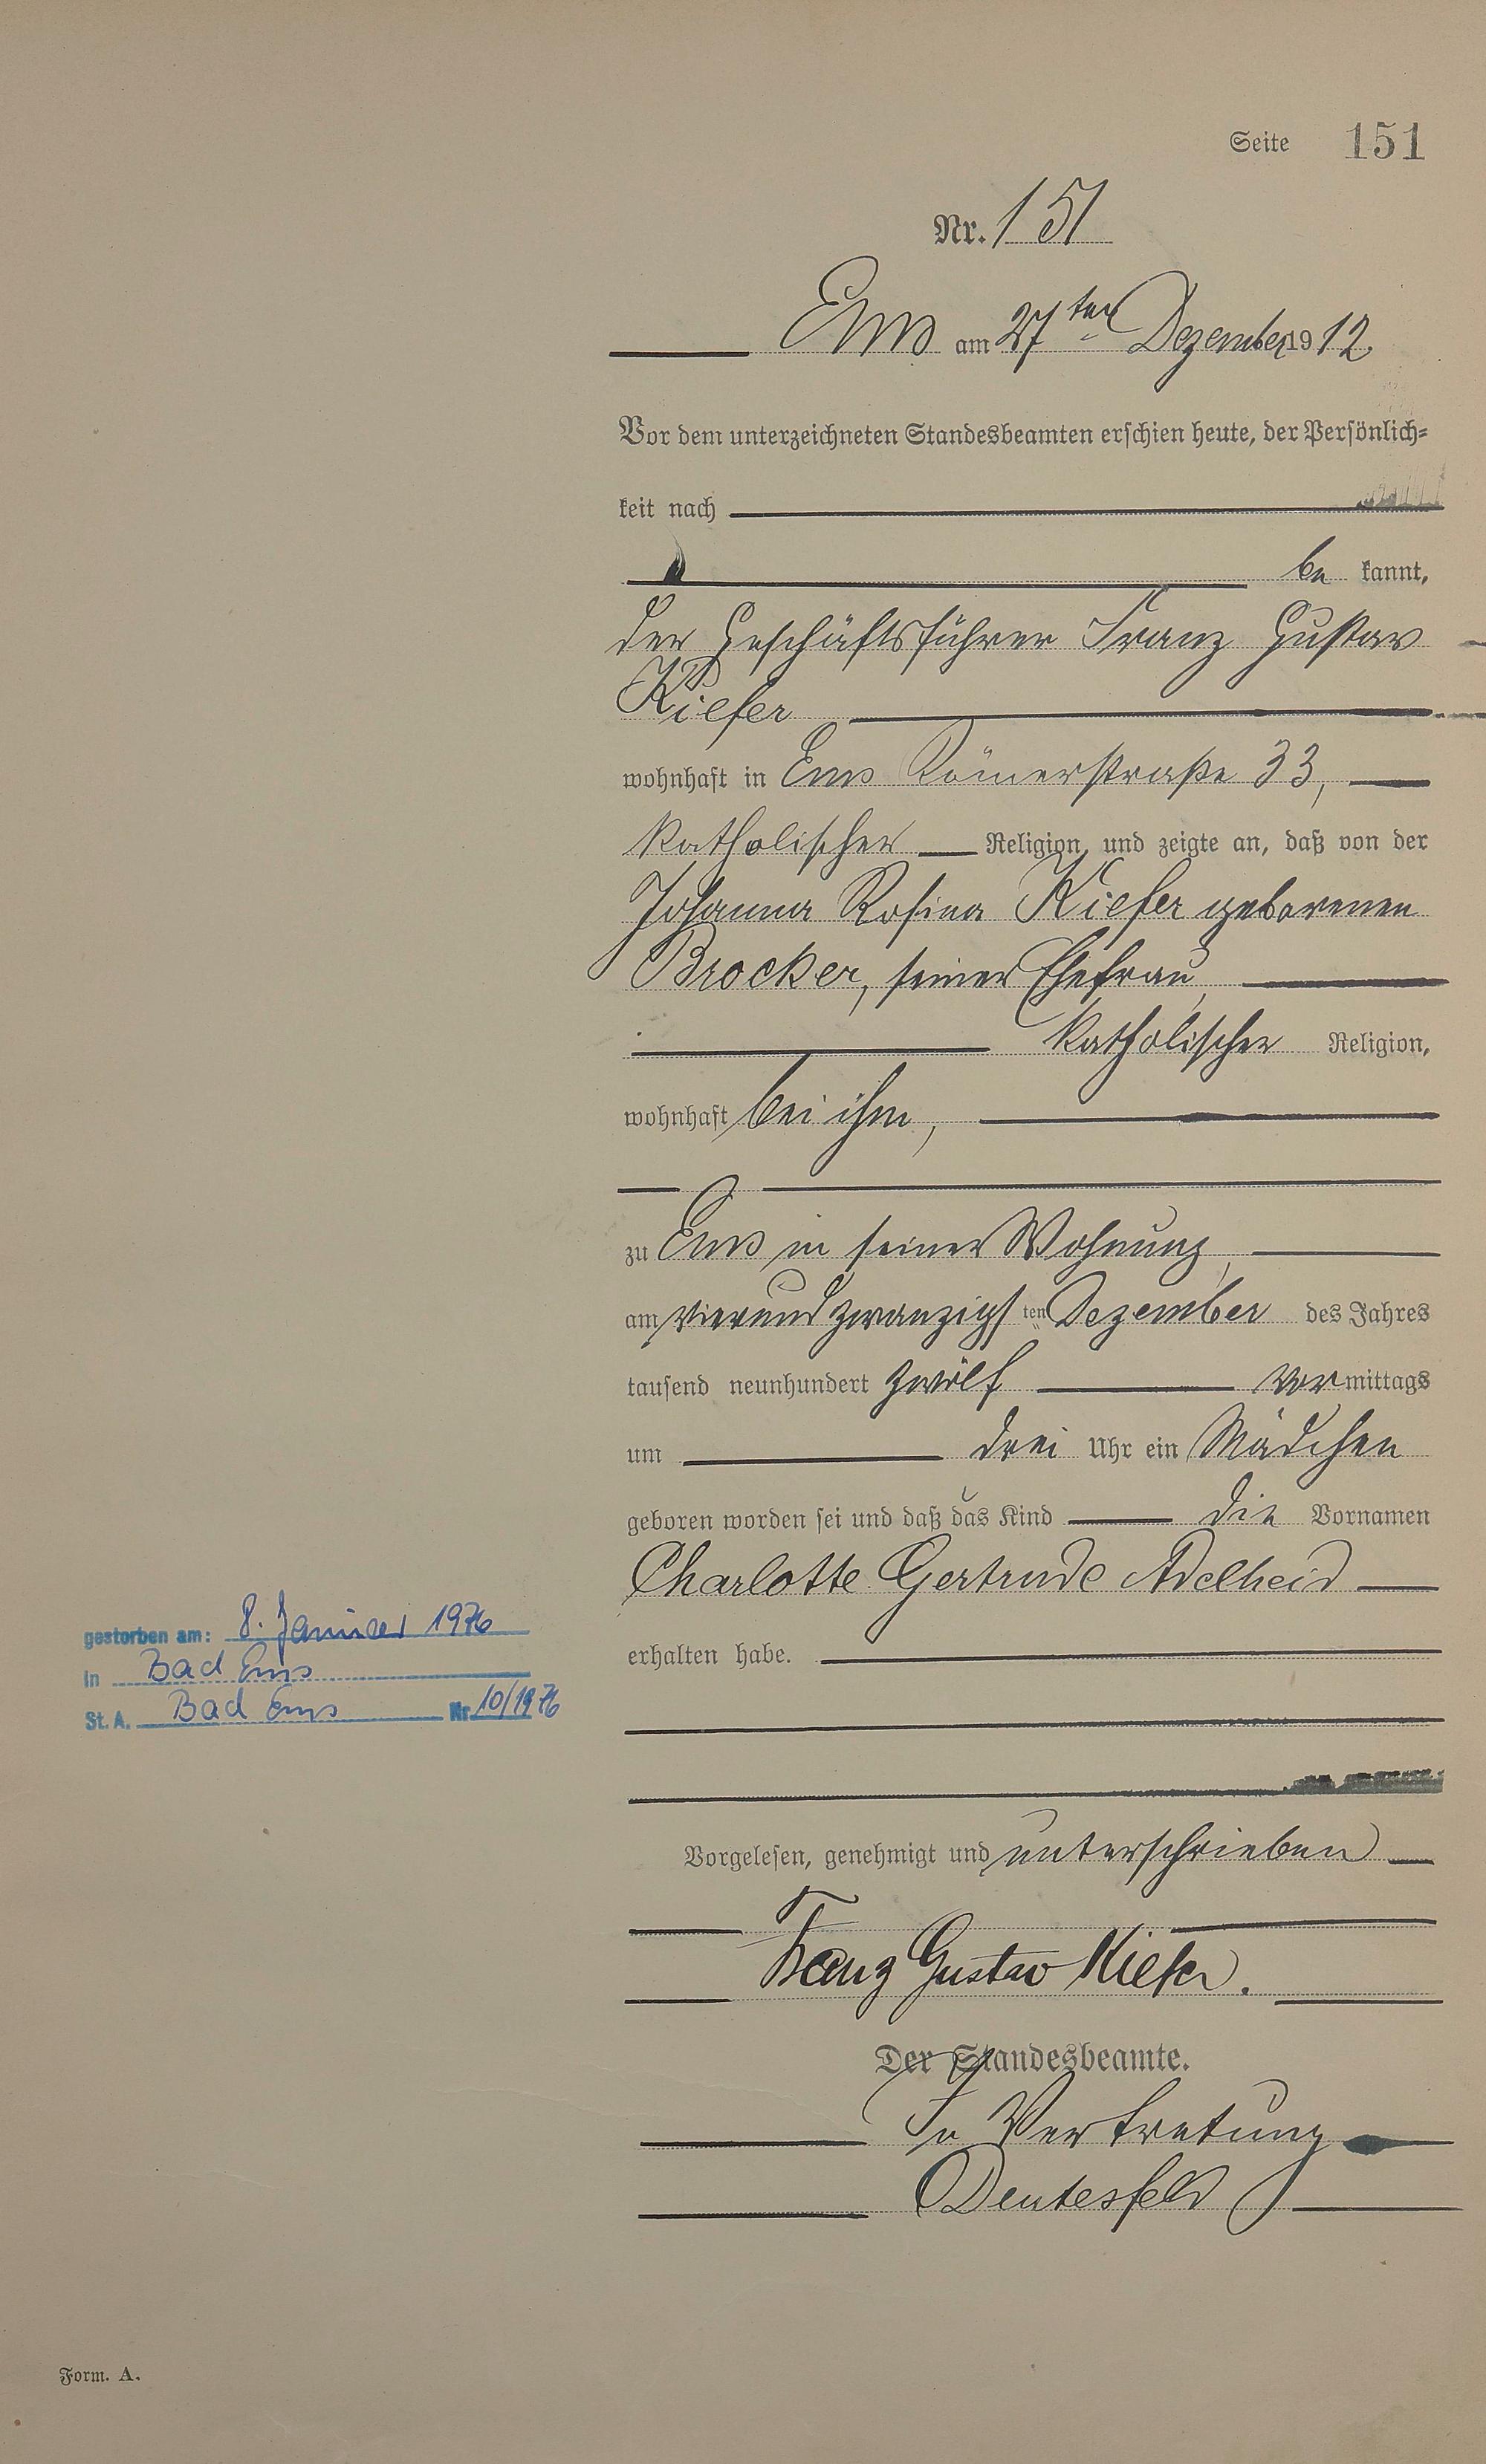 Seite 151
Nr. 151
Ems am 27ten Dezember 1912.
Vor dem unterzeichneten Standesbeamten erschien heute, der Persönlich-
keit nach
be kannt,
der Geschäftsführer Franz Gustav
Kiefer
wohnhaft in Ems Römerstraße 33,
katholischer Religion, und zeigte an, daß von der
Johanna Rosina Kiefer geborenen
Brocker, seiner Ehefrau,
katholischer Religion,
wohnhaft bei ihm,
zu Ems in seiner Wohnung,
am vierundzwanzigsten Dezember des Jahres
tausend neunhundert zwölf vormittags
um drei Uhr ein Mädchen
geboren worden sei und daß das Kind die Vornamen
Charlotte Gertrude Adelheid
erhalten habe.
gestorben am: 8. Januar 1976
in Bad Ems
St. A. Bad Ems Nr. 10/1976
Vorgelesen, genehmigt und unterschrieben
Franz Gustav Kiefer.
Der Standesbeamte.
In Vertretung
Deutesfeld
Form. A.